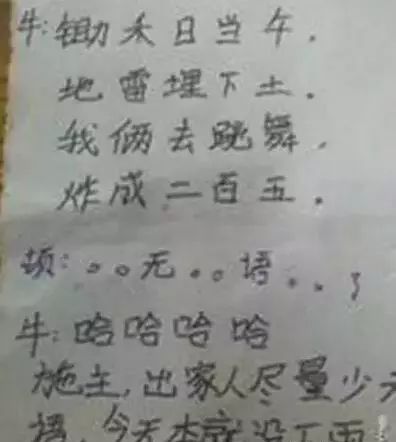 牛:锄禾日当午.
地雷埋下土.
我俩去跳舞.
炸成二百五.
顿:。。无。。语。。了
牛:哈哈哈哈
施主,出家人尽量少
语,今天本就没下雨